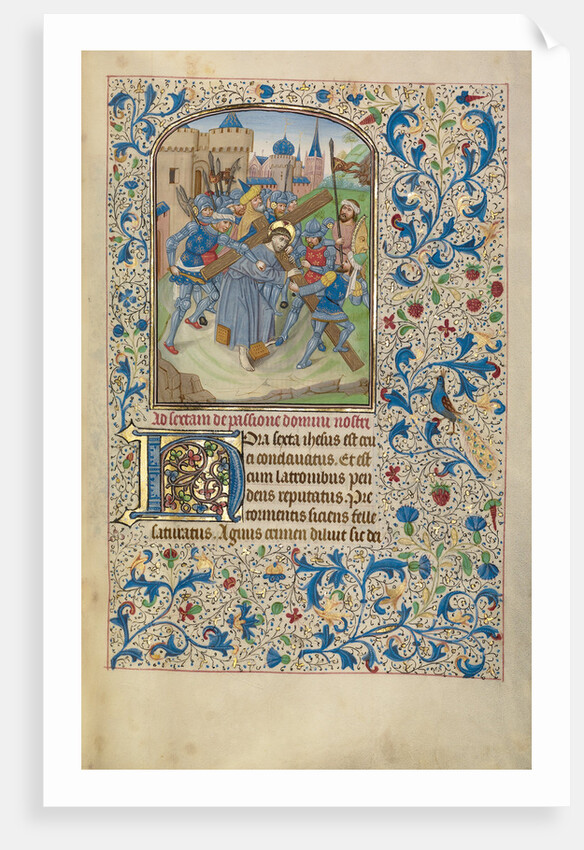 Ad sextam de passione domini nostri
Hora sexta ihesus est cru
a conclauatus. Et est
cum latronibus pen
dens reputatus. Pre
tormentis siciens felle
saturatus. Agnus crimen diluit sic dei